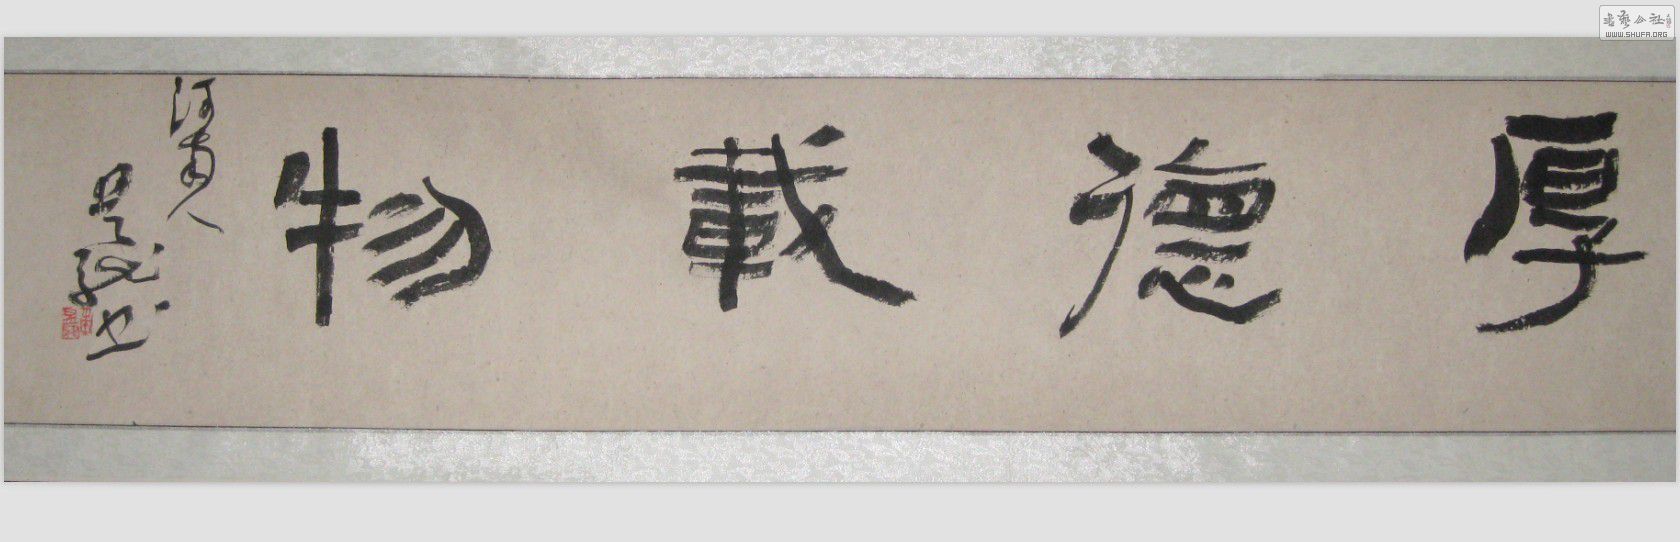 厚德載物
河南人
書藝公社
www.SHUFA.ORG